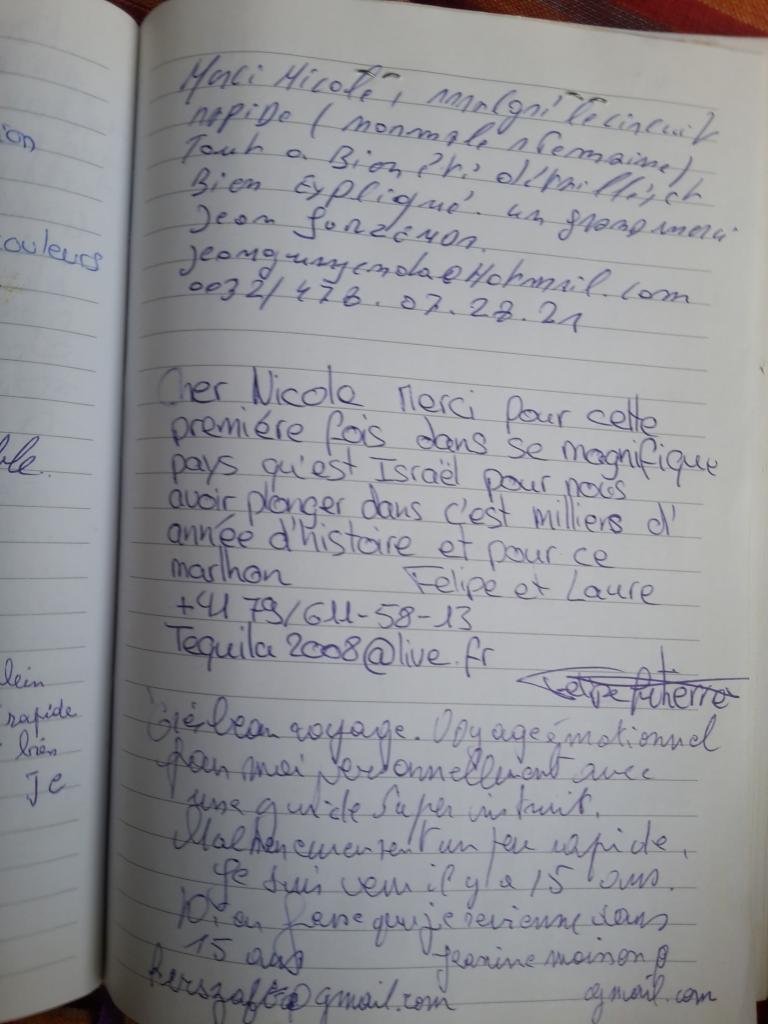 ion
ouleurs
ble.
lein
rapide
bien
Je
Merci Nicole, malgré le circuit
rapide (normale 1 semaine),
Tout a Bien été détaillé, et
Bien Expliqué. un grand merci
Jean
@Hotmail.com
0032/478.07.28.21
Cher Nicole Merci pour cette
première fois dans se magnifique
pays qu'est Israël pour nous
avoir plonger dans c'est milliers d'
année d'histoire et pour ce
marthon Felipe et Laure
+41 79/611-58-13
Tequila2008@live.fr
beau voyage. Voyage émotionnel
pour moi personnellement avec
une guide super instruit.
Malheureusement un peu rapide.
Je suis venu il y a 15 ans.
que je revienne dans
15 ans Jeanine
@gmail.com gmail.com